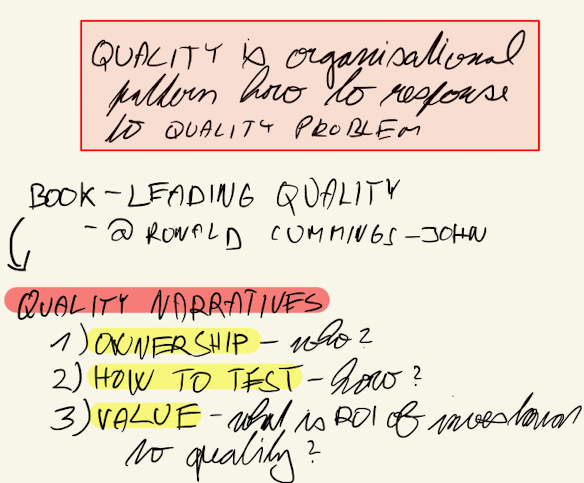 QUALITY is organisational
pattern how to response
to QUALITY PROBLEM
BOOK - LEADING QUALITY
- @ RONALD CUMMINGS-JOHN
QUALITY NARRATIVES
1) OWNERSHIP - who?
2) HOW TO TEST - how?
3) VALUE - what is ROI of
to quality?